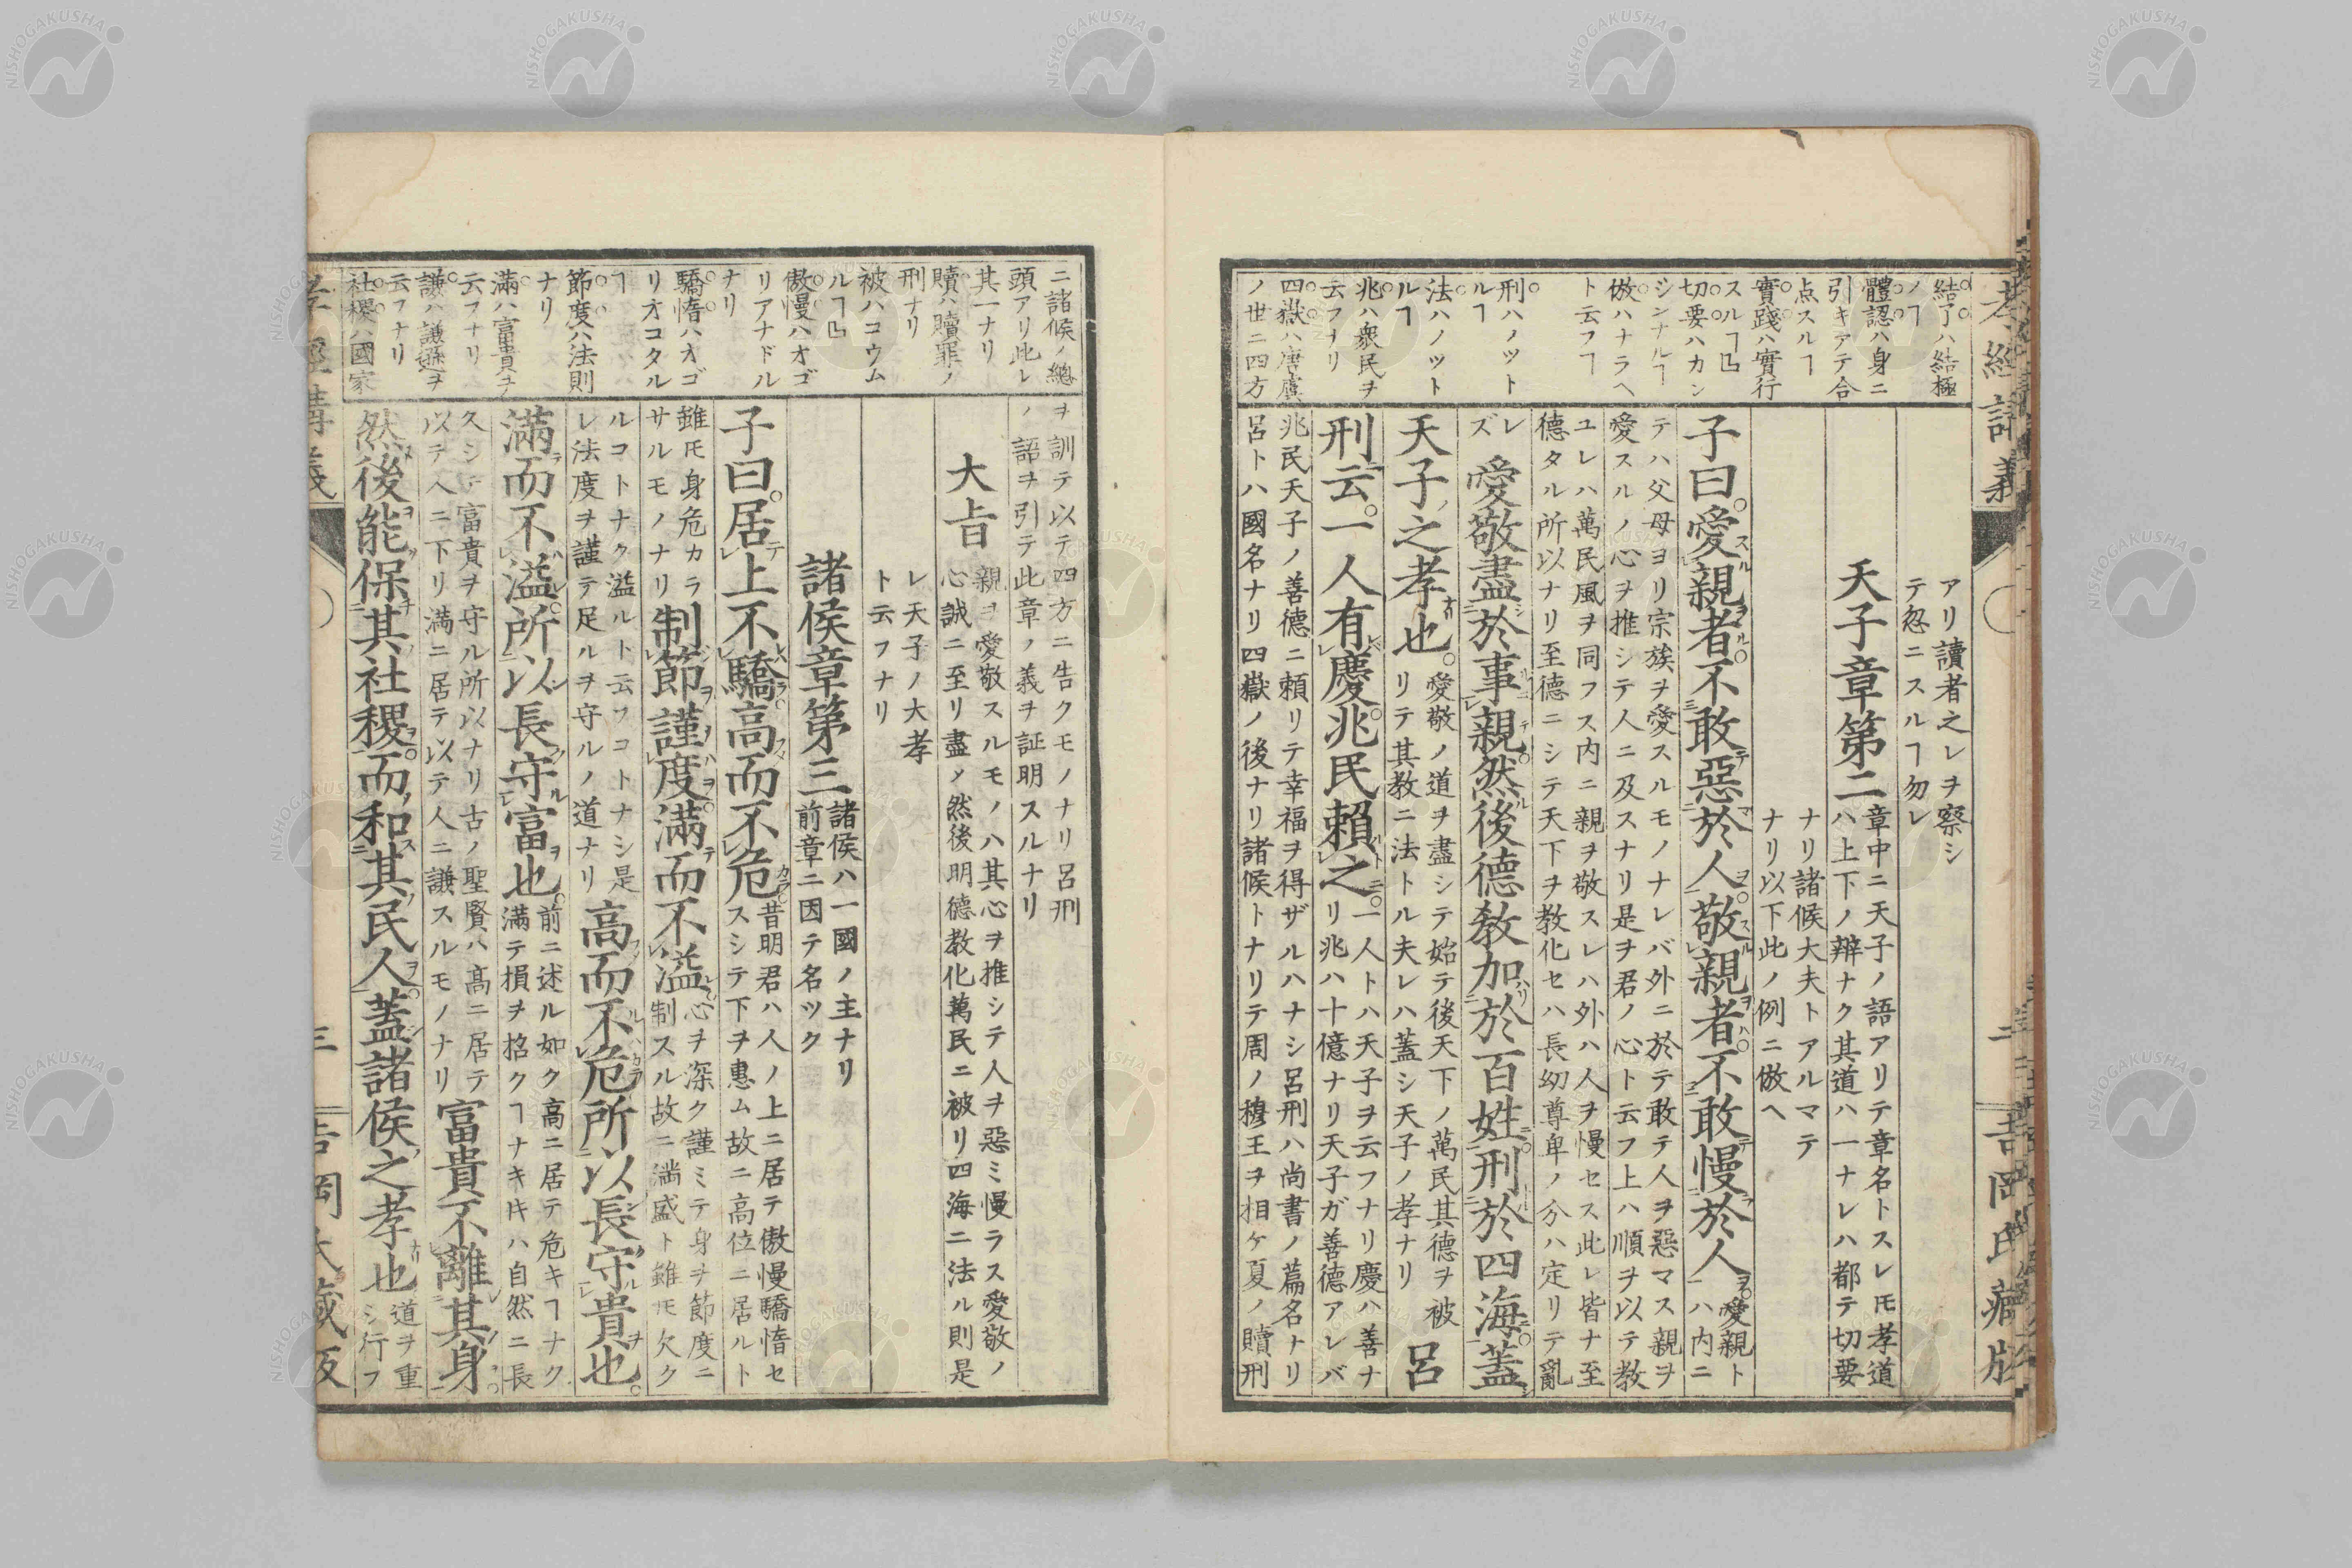 孝經講義
二
吉岡氏藏版
結了ハ結極
ノヿ
體認ハ身ニ
引キアテ合
点スルヿ
實踐ハ實行
スルヿ㔫
切要ハカン
シンナルヿ
倣ハナラヘ
ト云フヿ
刑ハノツト
ルヿ
法ハノツト
ルヿ
兆ハ衆民ヲ
云フナリ
四嶽ハ唐虞
ノ世ニ四方
アリ讀者之レヲ察シ
テ忽ニスルヿ勿レ
天子章第二
章中ニ天子ノ語アリテ章名トスレ𪜈孝道
ハ上下ノ辨ナク其道ハ一ナレハ都テ切要
ナリ諸候大夫トアルマテ
ナリ以下此ノ例ニ倣ヘ
子曰。愛スル親ヲ者ハ。不敢テ惡マ於人ヲ。敬スル親ヲ者ハ。不敢テ慢ラ於人ヲ。
愛親ト
ハ内ニ
テハ父母ヨリ宗族ヲ愛スルモノナレバ外ニ於テ敢テ人ヲ惡マス親ヲ
愛スルノ心ヲ推シテ人ニ及スナリ是ヲ君ノ心ト云フ上ハ順ヲ以テ教
ユレハ萬民風ヲ同フス内ニ親ヲ敬スレハ外ハ人ヲ慢セス此レ皆ナ至
德タル所以ナリ至德ニシテ天下ヲ教化セハ長幼尊卑ノ分ハ定リテ亂
レ
ズ
愛敬盡シ於事ルニ親ニ。然ル後德敎加ハリ於百姓ニ。刑ル於四海ニ。蓋シ
天子之孝也。
愛敬ノ道ヲ盡シテ始テ後天下ノ萬民其德ヲ被
リテ其教ニ法トル夫レハ蓋シ天子ノ孝ナリ
呂
刑云。一人有レバ慶。兆民賴ル之ニ。
一人トハ天子ヲ云フナリ慶ハ善ナ
リ兆ハ十億ナリ天子ガ善德アレバ
兆民天子ノ善德ニ賴リテ幸福ヲ得ザルハナシ呂刑ハ尚書ノ篇名ナリ
呂トハ國名ナリ四嶽ノ後ナリ諸候トナリテ周ノ穆王ヲ相ケ夏ノ贖刑
ニ諸候ノ總
頭アリ此レ
其一ナリ
贖ハ贖罪ノ
刑ナリ
被ハコウム
ルヿ㔫
傲慢ハオゴ
リアナドル
ナリ
驕惰ハオゴ
リオコタル
ヿ
節度ハ法則
ナリ
滿ハ富貴ヲ
云フナリ
謙ハ謙遜ヲ
云フナリ
社稷ハ國家
ヲ訓テ以テ四方ニ告クモノナリ呂刑
ノ語ヲ引テ此章ノ義ヲ証明スルナリ
大旨
親ヲ愛敬スルモノハ其心ヲ推シテ人ヲ惡ミ慢ラス愛敬ノ
心誠ニ至リ盡ノ然後明德教化萬民ニ被リ四海ニ法ル則是
レ天子ノ大孝
ト云フナリ
諸侯章第三
諸侯ハ一國ノ主ナリ
前章ニ因テ名ツク
子曰。居テ上ニ不驕ラ。高フメ而不危カラ。
昔明君ハ人ノ上ニ居テ傲慢驕惰セ
スシテ下ヲ惠ム故ニ高位ニ居ルト
雖𪜈身危カラ
サルモノナリ
制シ節ヲ謹ハ度ヲ。滿テ而不溢レ。
心ヲ深ク謹ミテ身ヲ節度ニ
制スル故ニ滿盛ト雖𪜈欠ク
ルコトナク溢ルト云フコトナシ是
レ法度ヲ謹テ足ルヲ守ルノ道ナリ
高フ而不ルハ危カラ所以ン長ク守ル貴ヲ也。
滿テ而不ルハ溢レ。所以ン長ク守ル富ヲ也。
前ニ述ル如ク高ニ居テ危キヿナク
滿テ損ヲ招クヿナキ𪜈ハ自然ニ長
久シテ富貴ヲ守ル所以ナリ古ノ聖賢ハ高ニ居テ
以テ人ニ下リ滿ニ居テ以テ人ニ謙スルモノナリ
富貴不離レ其身ヲ。
然メ後能ク保チ其社稷ヲ。而和ス其民人ヲ。蓋シ諸侯之孝也
道ヲ重
シ行フ
孝經講義
三
吉岡氏藏版